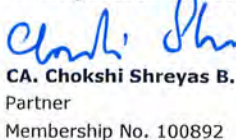 CA. Chokshi Shreyas B.
Partner
Membership No. 100892